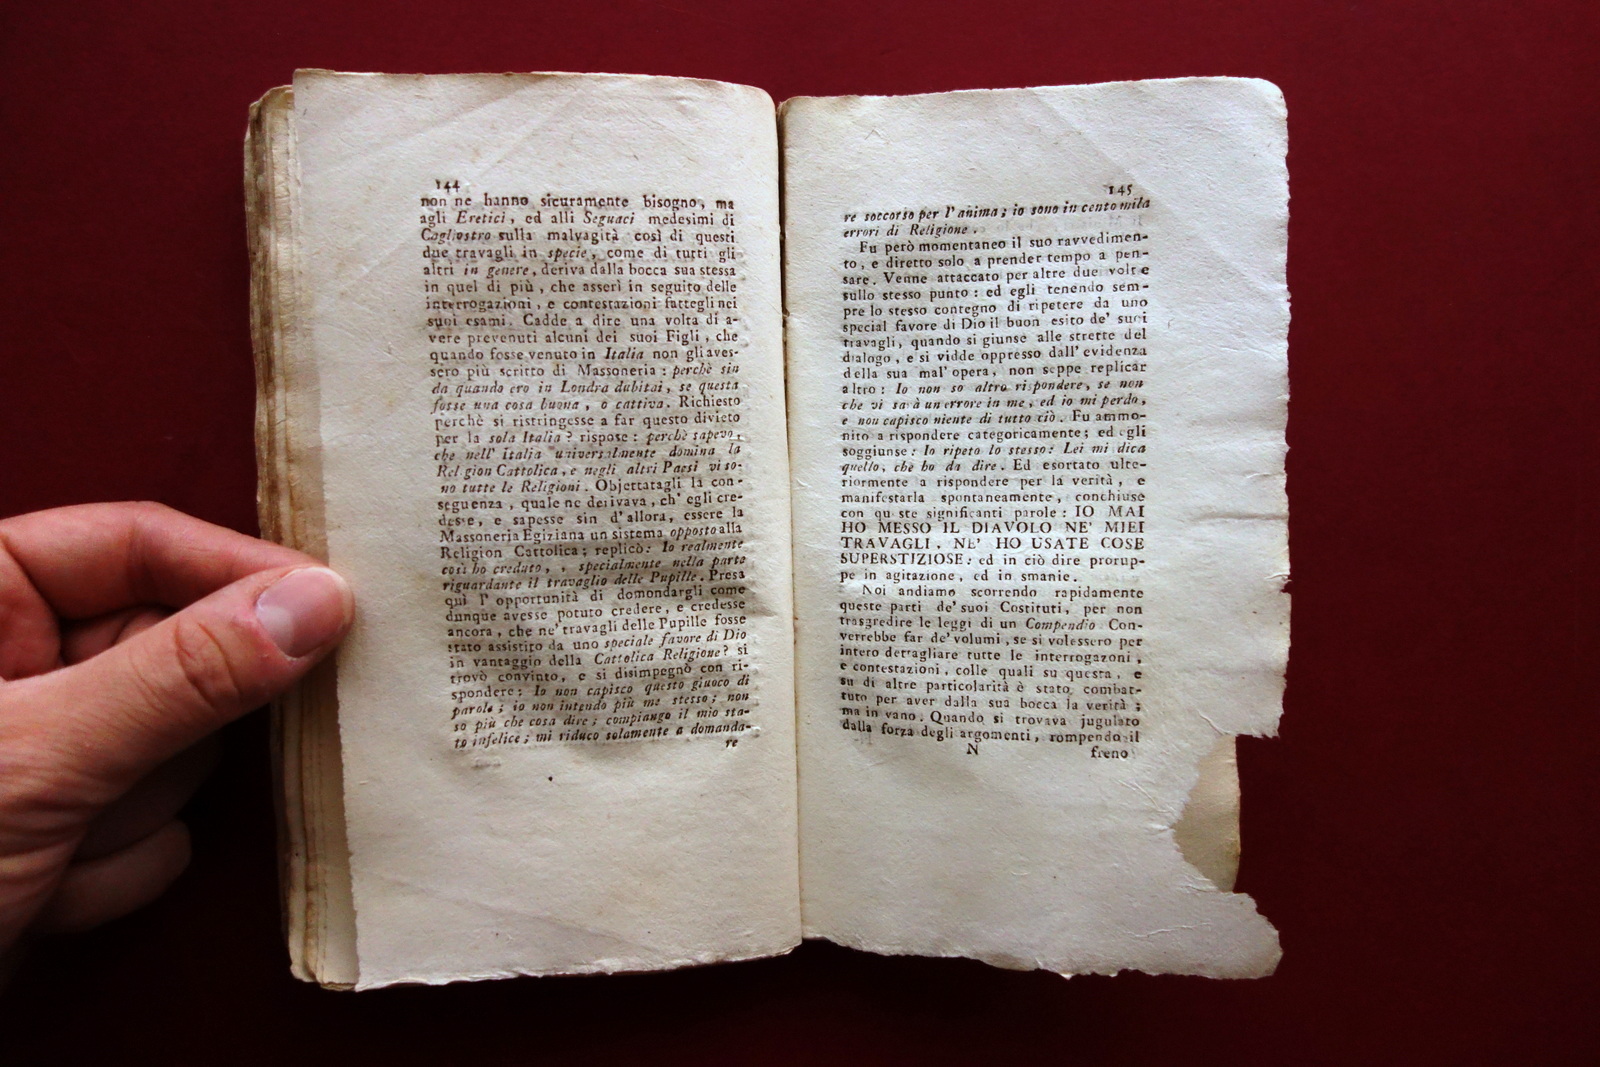 144
non ne hanno sicuramente bisogno, ma
agli Eretici, ed alli Seguaci medesimi di
Cagliostro sulla malvagità così di questi
due travagli in specie, come di tutti gli
altri in genere, deriva dalla bocca sua stessa
in quel di più, che asserì in seguito delle
interrogazioni, e contestazioni fattegli nei
suoi esami. Cadde a dire una volta di a-
vere prevenuti alcuni dei suoi Figli, che
quando fosse venuto in Italia non gli aves-
sero più scritto di Massoneria: perchè sin
da quando ero in Londra dubitai, se questa
fosse una cosa buona, o cattiva. Richiesto
perchè si ristringesse a far questo divieto
per la sola Italia? rispose: perchè sapevo,
che nell' Italia universalmente domina la
Religion Cattolica, e negli altri Paesi vi so-
no tutte le Religioni. Objettatagli la con-
seguenza, quale ne derivava, ch' egli cre-
desse, e sapesse sin d'allora, essere la
Massoneria Egiziana un sistema opposto alla
Religion Cattolica; replicò: Io realmente
così ho creduto, , specialmente nella parte
riguardante il travaglio delle Pupille. Presa
quì l' opportunità di domandargli come
dunque avesse potuto credere, e credesse
ancora, che ne' travagli delle Pupille fosse
stato assistito da uno speciale favore di Dio
in vantaggio della Cattolica Religione? si
trovò convinto, e si disimpegnò con ri-
spondere: Io non capisco questo giuoco di
parole; io non intendo più me stesso; non
so più che cosa dire; compiango il mio sta-
to infelice; mi riduco solamente a domanda-
re
145
re soccorso per l' anima; io sono in cento mila
errori di Religione.
Fu però momentaneo il suo ravvedimen-
to, e diretto solo a prender tempo a pen-
sare. Venne attaccato per altre due volte
sullo stesso punto: ed egli tenendo sem-
pre lo stesso contegno di ripetere da uno
special favore di Dio il buon esito de' suoi
travagli, quando si giunse alle strette del
dialogo, e si vidde oppresso dall' evidenza
della sua mal' opera, non seppe replicar
altro: Io non so altro rispondere, se non
che vi sarà un errore in me, ed io mi perdo,
e non capisco niente di tutto ciò. Fu ammo-
nito a rispondere categoricamente; ed egli
soggiunse: Io ripeto lo stesso: Lei mi dica
quello, chè ho da dire. Ed esortato ulte-
riormente a rispondere per la verità, e
manifestarla spontaneamente, conchiuse
con queste significanti parole: IO MAI
HO MESSO IL DIAVOLO NE' MIEI
TRAVAGLI, NE' HO USATE COSE
SUPERSTIZIOSE: ed in ciò dire prorup-
pe in agitazione, ed in smanie.
Noi andiamo scorrendo rapidamente
queste parti de' suoi Costituti, per non
trasgredire le leggi di un Compendio Con-
verrebbe far de' volumi, se si volessero per
intero detragliare tutte le interrogazoni,
e contestazioni, colle quali su questa, e
su di altre particolarità è stato combat-
tuto per aver dalla sua bocca la verità;
ma in vano. Quando si trovava jugulato
dalla forza degli argomenti, rompendo il
N freno